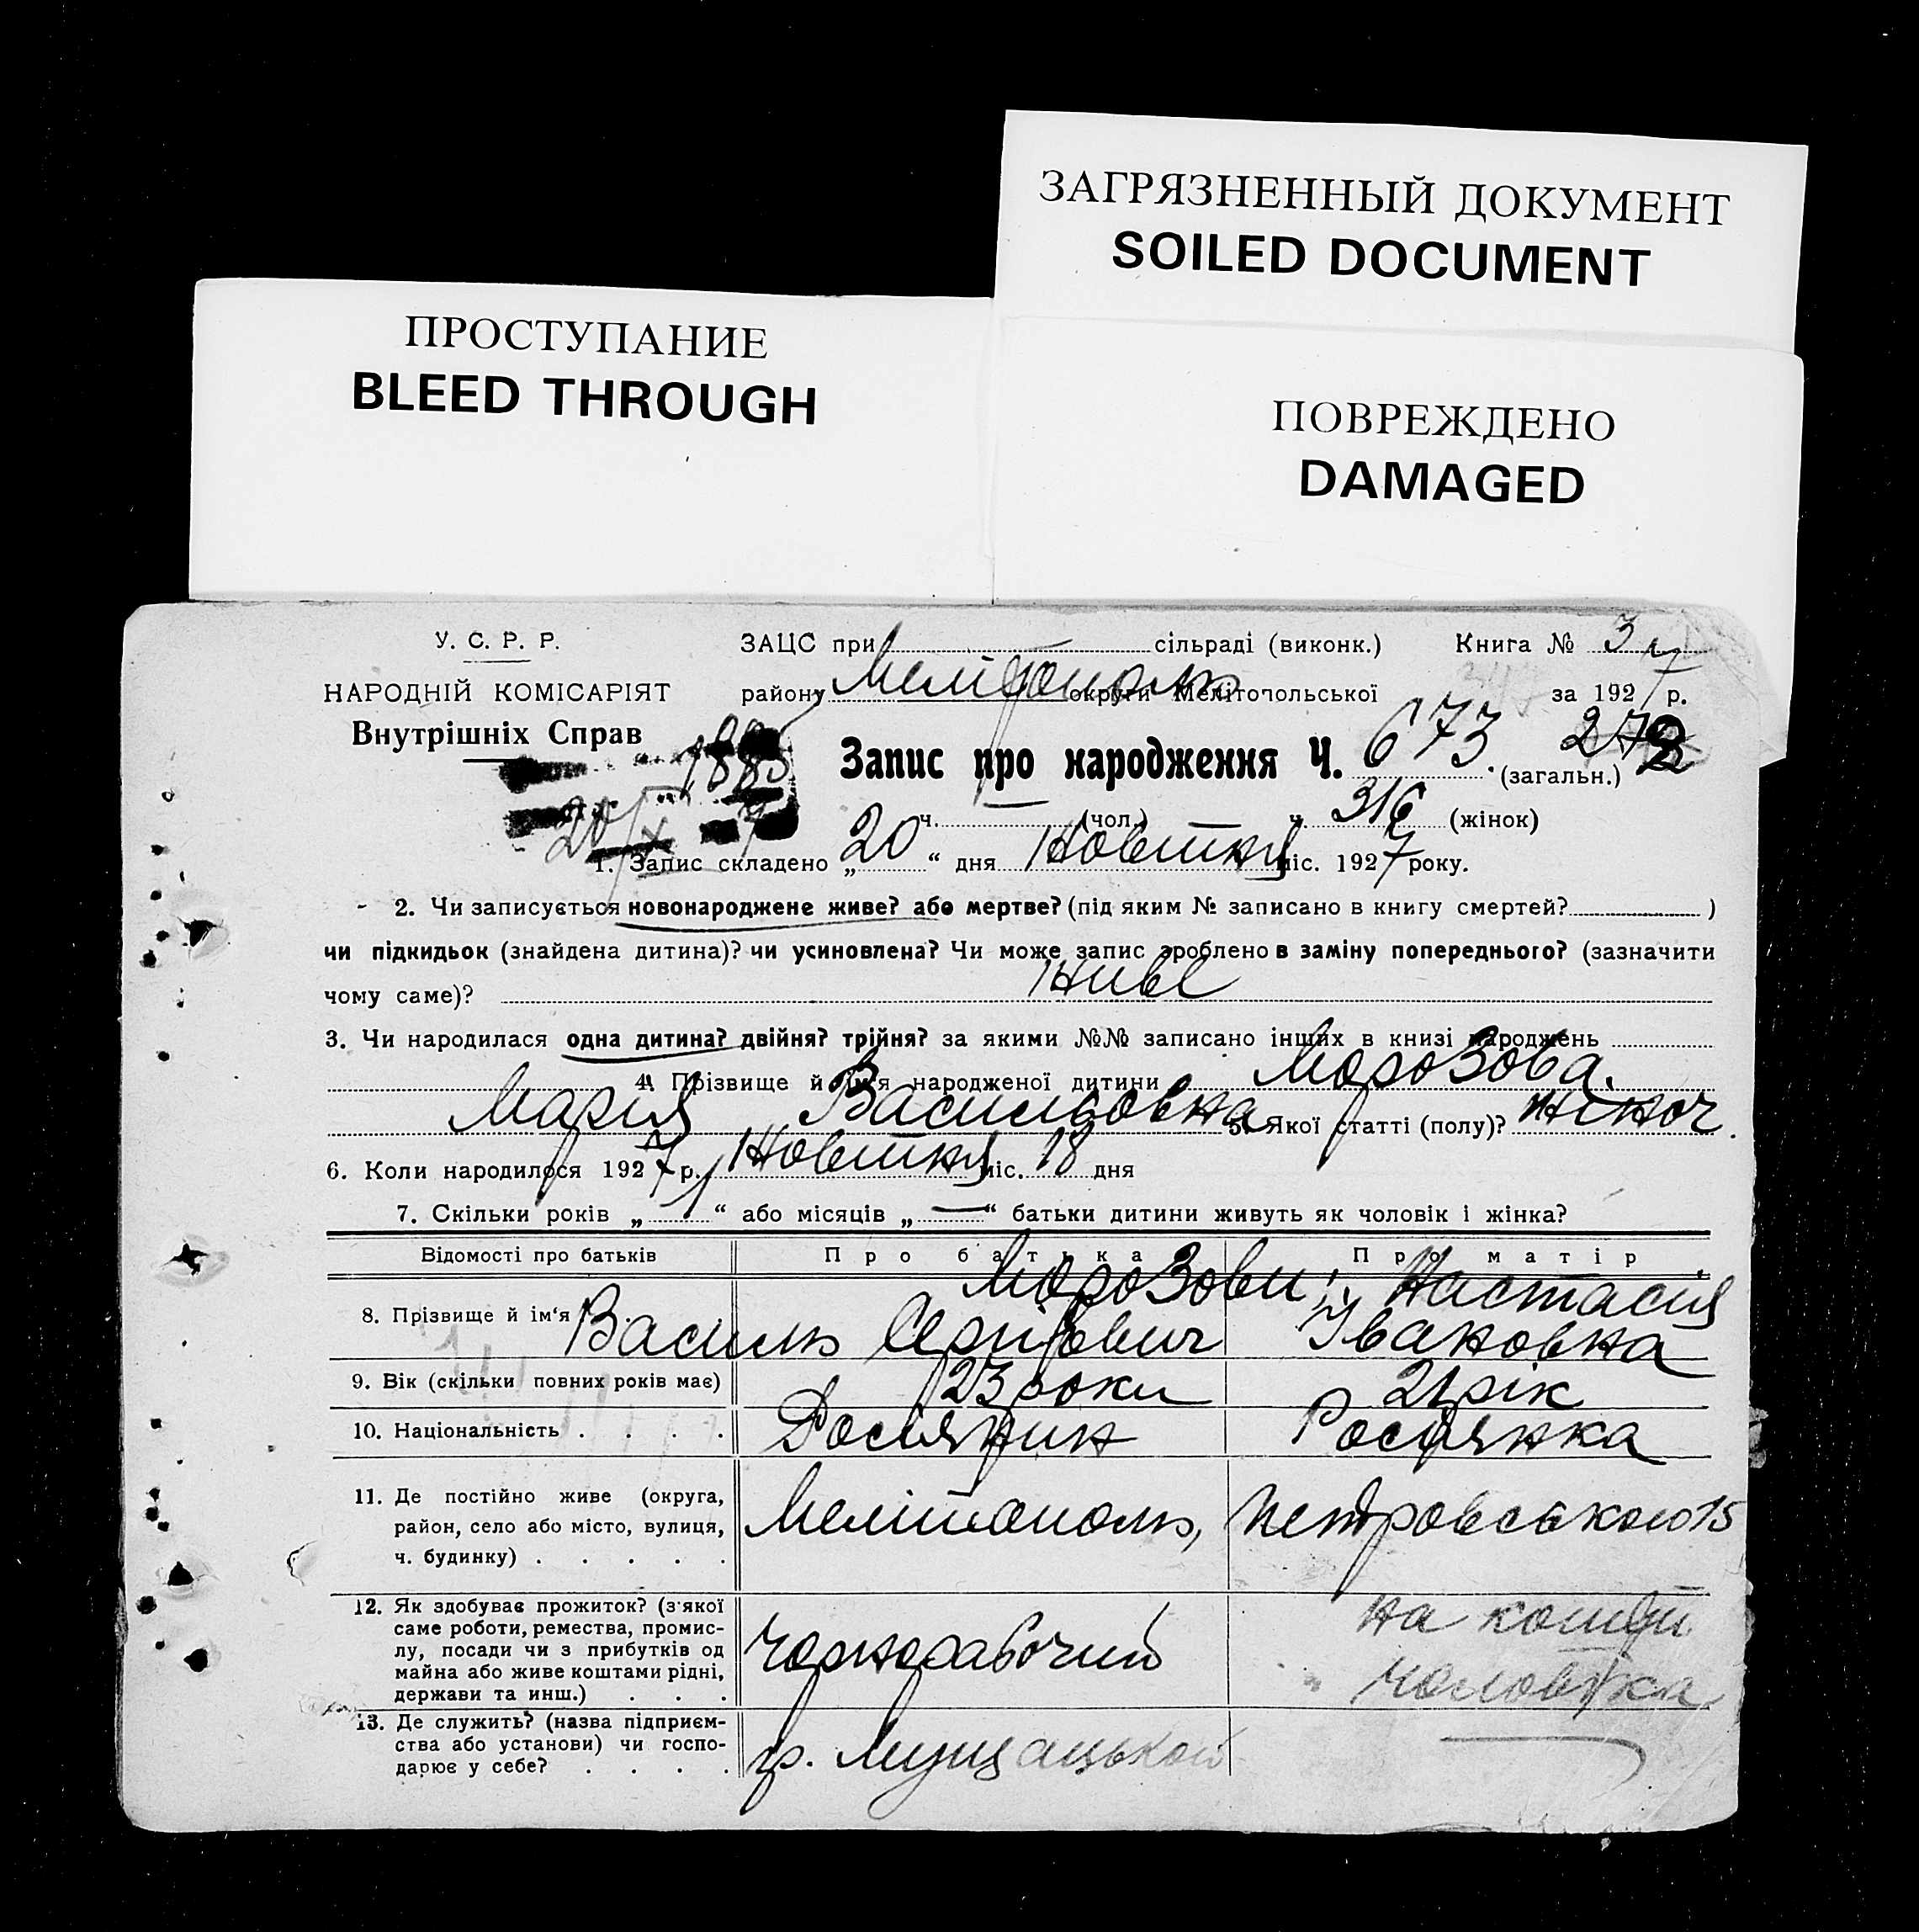 ЗАГРЯЗНЕННЫЙ ДОКУМЕНТ
SOILED DOCUMENT
ПРОСТУПАНИЕ
BLEED THROUGH
ПОВРЕЖДЕНО
DAMAGED
У. С. Р. Р.
НАРОДНІЙ КОМІСАРІЯТ
Внутрішніх Справ
ЗАЦС при сільраді (виконк.) Книга № 3
району Мелітополь округи Мелітопольської за 1927 р.
Запис про народження Ч. 673 (загальн.)
ч. (чол.) ч. 316 (жінок)
1. Запис складено „20“ дня Новтня міс. 1927 року.
2. Чи записується новонароджене живе? або мертве? (під яким № записано в книгу смертей? )
чи підкидьок (знайдена дитина)? чи усиновлена? Чи може запис зроблено в заміну попереднього? (зазначити
чому саме)? Живе
3. Чи народилася одна дитина? двійня? трійня? за якими №№ записано інших в книзі народжень
4. Прізвище й ім'я народженої дитини Морозова
Марія Васильовна 5. Якої статті (полу)? жіноч.
6. Коли народилося 1927 р. Жовтня міс. 18 дня
7. Скільки років „1“ або місяців „—“ батьки дитини живуть як чоловік і жінка?
Відомості про батьків Про батька Про матір
8. Прізвище й ім'я Морозови; Настасія
Василь Сергійович Івановна
9. Вік (скільки повних років має) 23 роки 21 рік
10. Національність . . . . Росіянин Росіянка
11. Де постійно живе (округа,
район, село або місто, вулиця,
ч. будинку) . . . . .
Мелітополь, Петровського 15
12. Як здобуває прожиток? (з'якої
саме роботи, ремества, промис-
лу, посади чи з прибутків од
майна або живе коштами рідні,
держави та инш.) . . .
Чорнорабочий
на кошти
чоловіка
13. Де служить? (назва підприєм-
ства або установи) чи госпо-
дарює у себе? . . . .
гр.